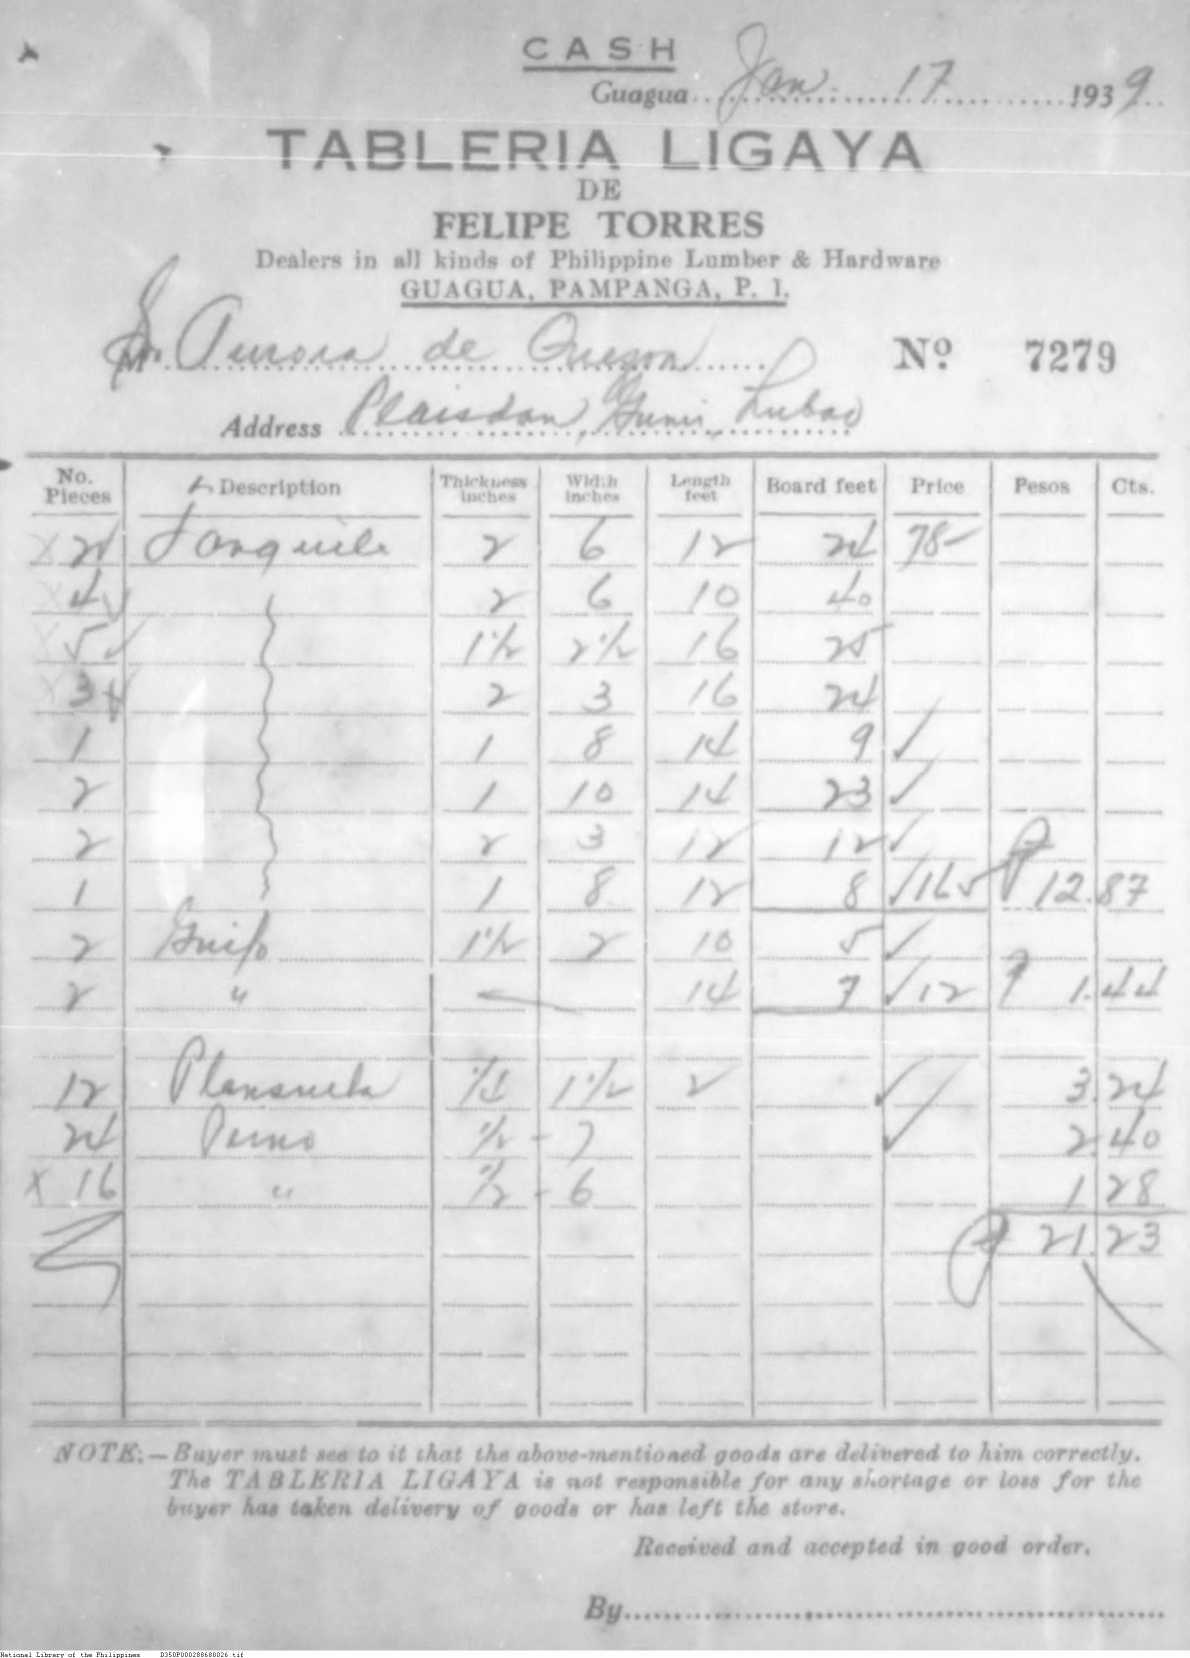 CASH
Guagua Jan. 17 1939
TABLERIA LIGAYA
DE
FELIPE TORRES
Dealers in all kinds of Philippine Lumber & Hardware
GUAGUA, PAMPANGA, P. I.
Aurora de Quezon Nº 7279
Address Plaisdan, Gumi, Lubao
No. Pieces Description Thickness inches Width inches Length feet Board feet Price Pesos Cts.
x 2 Tanguile 2 6 12 24 78-
x 4 2 6 10 40
x 5 1 1/2 2 1/2 16 25
x 3 2 3 16 24
1 1 8 14 9 ✓
2 1 10 14 23 ✓
2 2 3 12 12 ✓
1 1 8 12 8 ✓ 165 ₱ 12.87
2 Guijo 1 1/2 2 10 5 ✓
2 " 14 7 ✓ 12 ₱ 1.44
12 Plansuela 1/4 1 1/2 2 ✓ 3.24
24 Perno 1/2 - 7 ✓ 2.40
x 16 " 1/2 - 6 1.28
₱ 21.23
NOTE:—Buyer must see to it that the above-mentioned goods are delivered to him correctly.
The TABLERIA LIGAYA is not responsible for any shortage or loss for the
buyer has taken delivery of goods or has left the store.
Received and accepted in good order.
By
National Library of the Philippines D350P000288680026.tif